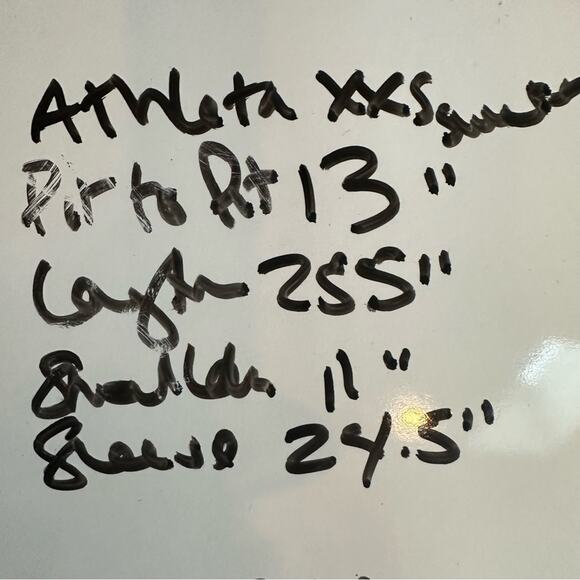 Athleta XXS
Pit to Pit 13"
Length 25.5"
Shoulder 11"
Sleeve 24.5"